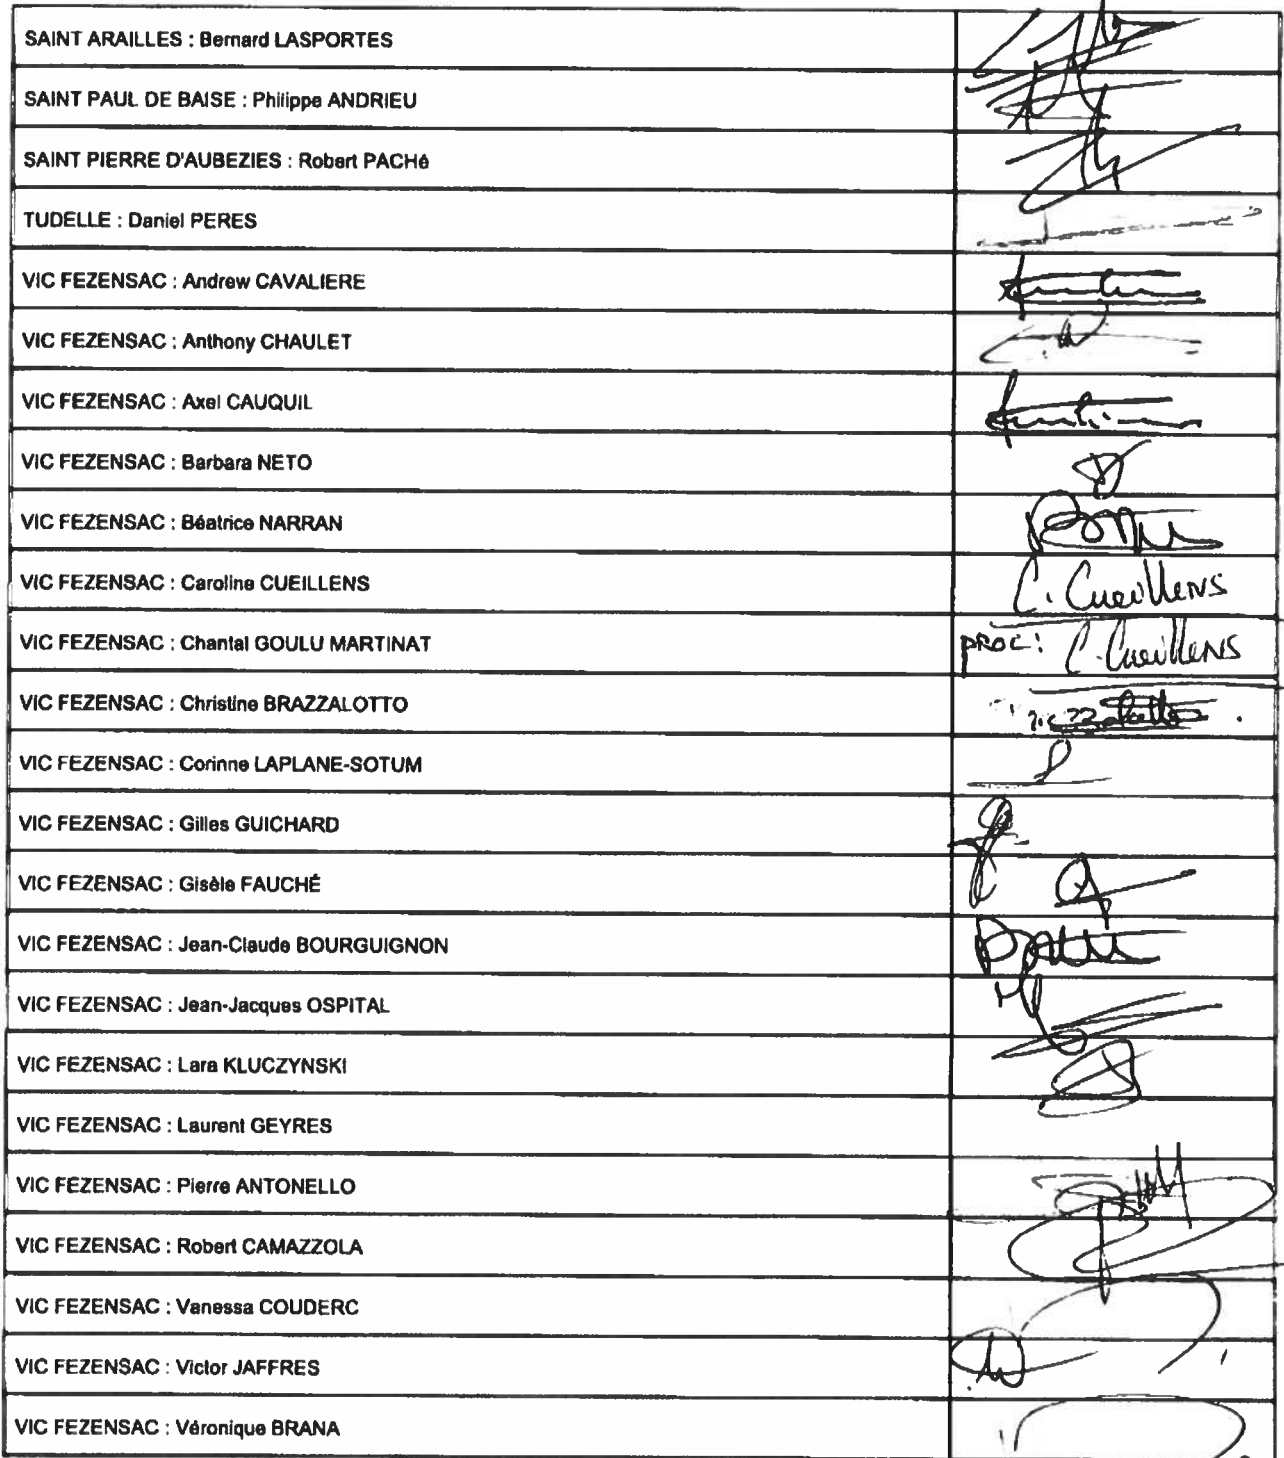 SAINT ARAILLES : Bernard LASPORTES
SAINT PAUL DE BAISE : Philippe ANDRIEU
SAINT PIERRE D'AUBEZIES : Robert PACHé
TUDELLE : Daniel PERES
VIC FEZENSAC : Andrew CAVALIERE
VIC FEZENSAC : Anthony CHAULET
VIC FEZENSAC : Axel CAUQUIL
VIC FEZENSAC : Barbara NETO
VIC FEZENSAC : Béatrice NARRAN
VIC FEZENSAC : Caroline CUEILLENS C. Cueillens
VIC FEZENSAC : Chantal GOULU MARTINAT proc: C. Cueillens
VIC FEZENSAC : Christine BRAZZALOTTO
VIC FEZENSAC : Corinne LAPLANE-SOTUM
VIC FEZENSAC : Gilles GUICHARD
VIC FEZENSAC : Gisèle FAUCHÉ
VIC FEZENSAC : Jean-Claude BOURGUIGNON
VIC FEZENSAC : Jean-Jacques OSPITAL
VIC FEZENSAC : Lara KLUCZYNSKI
VIC FEZENSAC : Laurent GEYRES
VIC FEZENSAC : Pierre ANTONELLO
VIC FEZENSAC : Robert CAMAZZOLA
VIC FEZENSAC : Vanessa COUDERC
VIC FEZENSAC : Victor JAFFRES
VIC FEZENSAC : Véronique BRANA